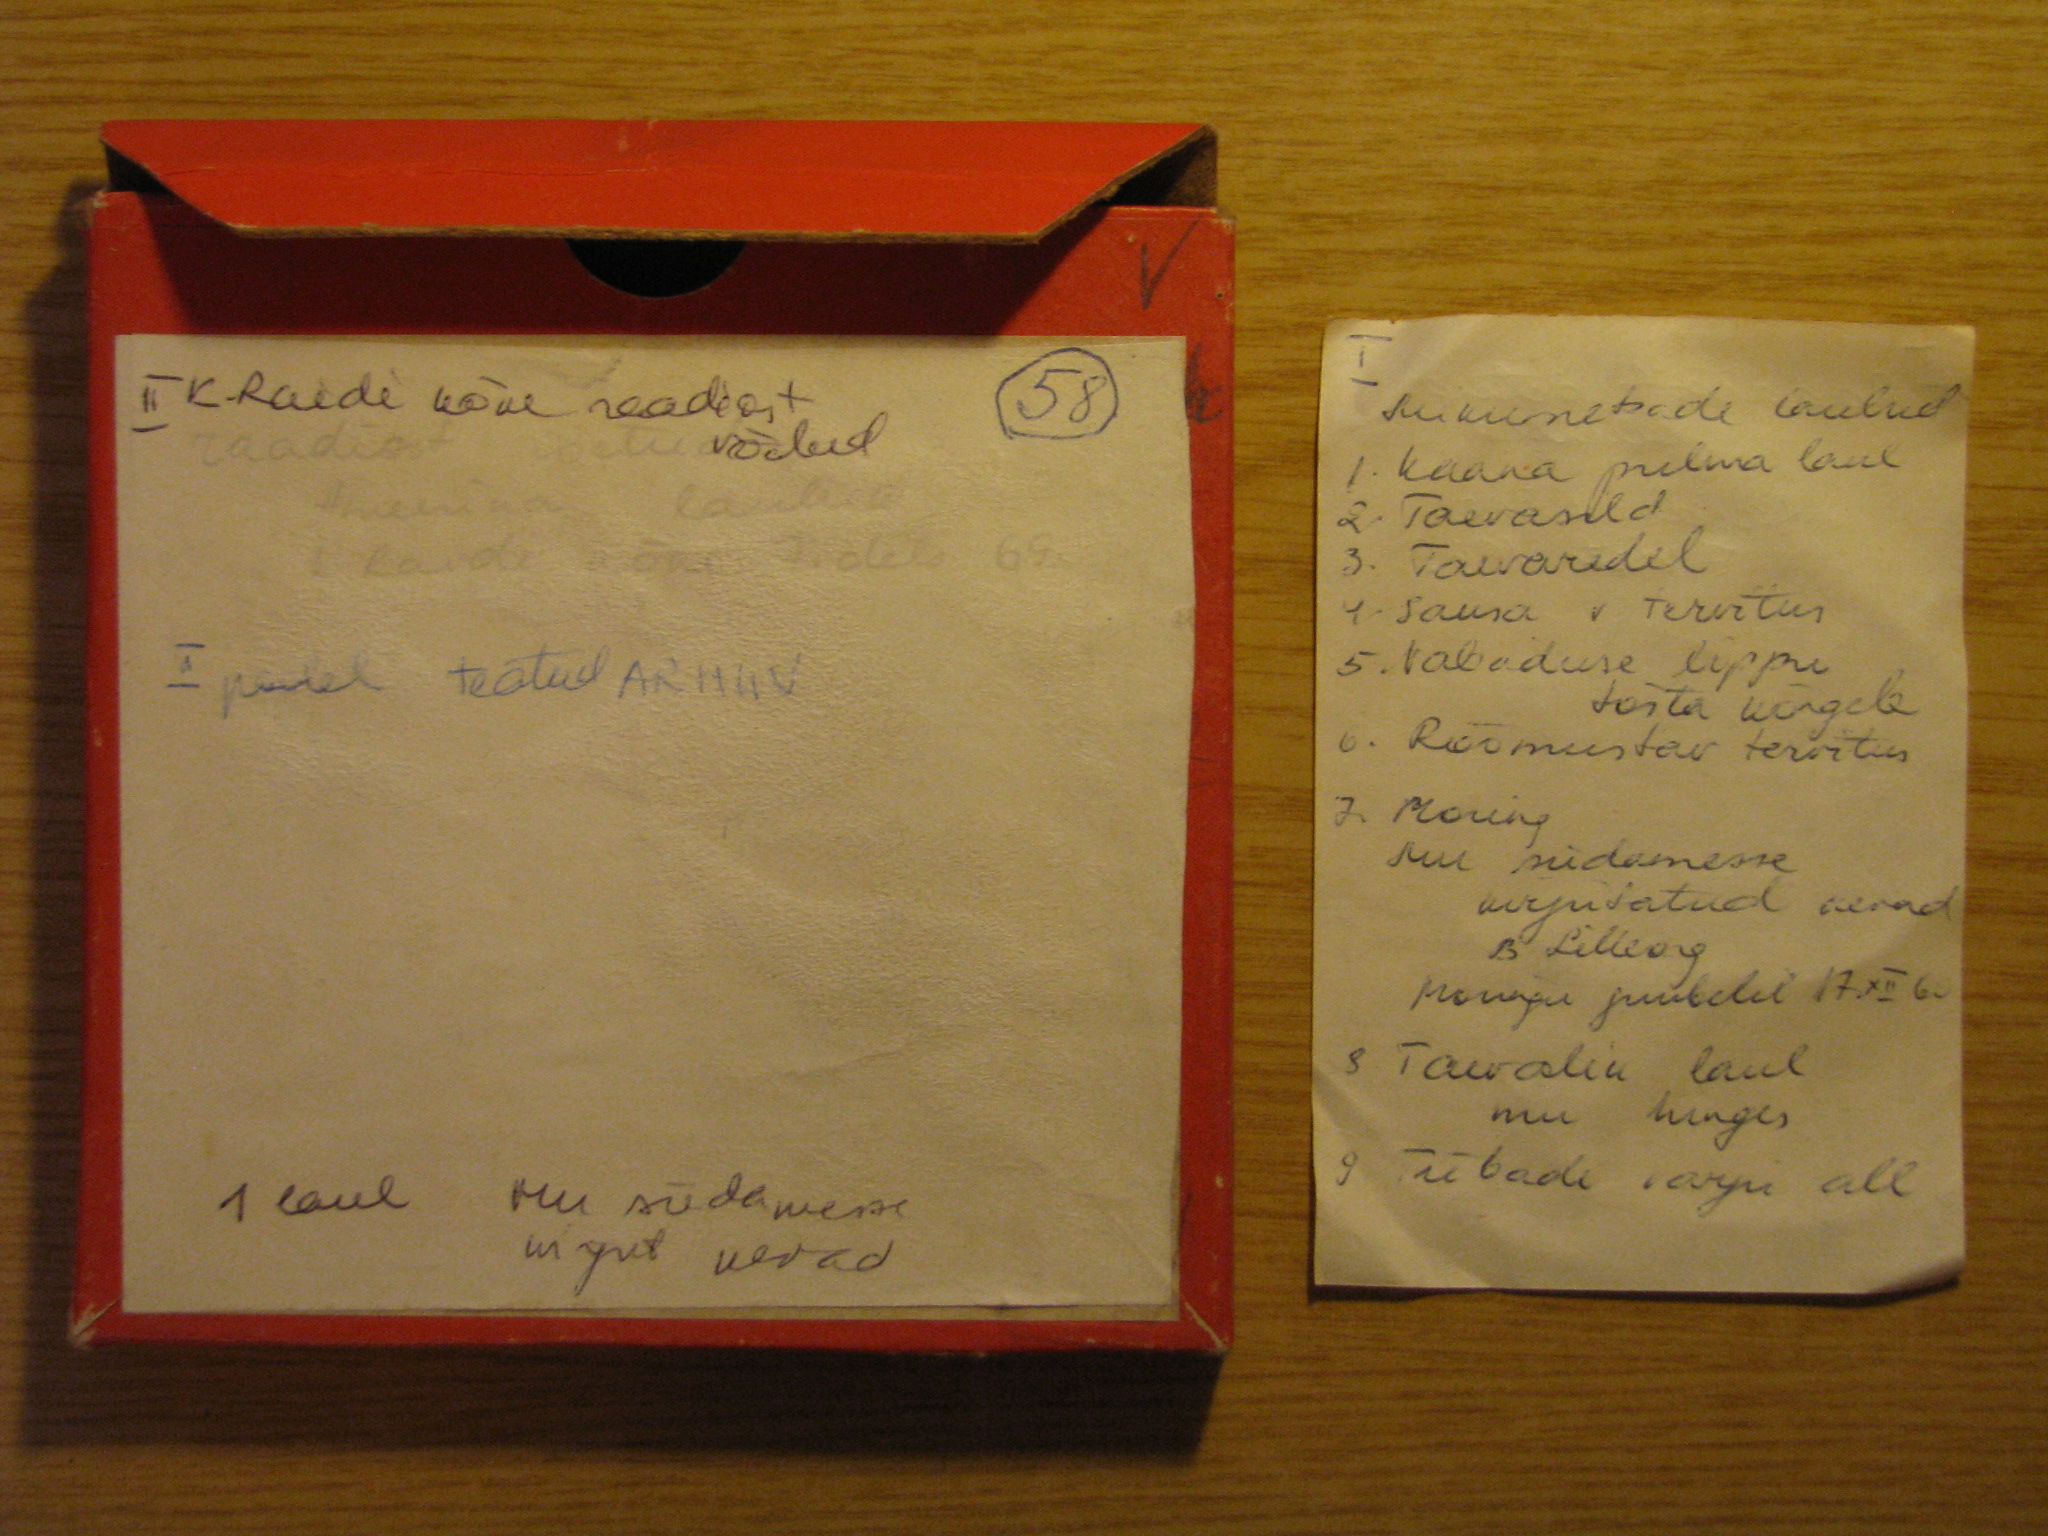 V
II K. Raidi kõne raadiost
võetud
58
raadiost
Ameerika laulud
Raidi kõne 69
II poolel teatud ARHIIV
1 laul Mu südamesse
kirjut kevad
I
laulud
1. Kaana pulma laul
2. Taevasild
3. Taevaredel
4. Sauna v tervitus
5. Vabaduse lippu
tõsta kõrgele
6. Rõõmustav tervitus
7. Moring
Mu südamesse
kirjutatud kevad
B Lilleorg
Moringu juubelil 17.XII 6
8 Taevalik laul
mu hinges
9 Tiibade varju all